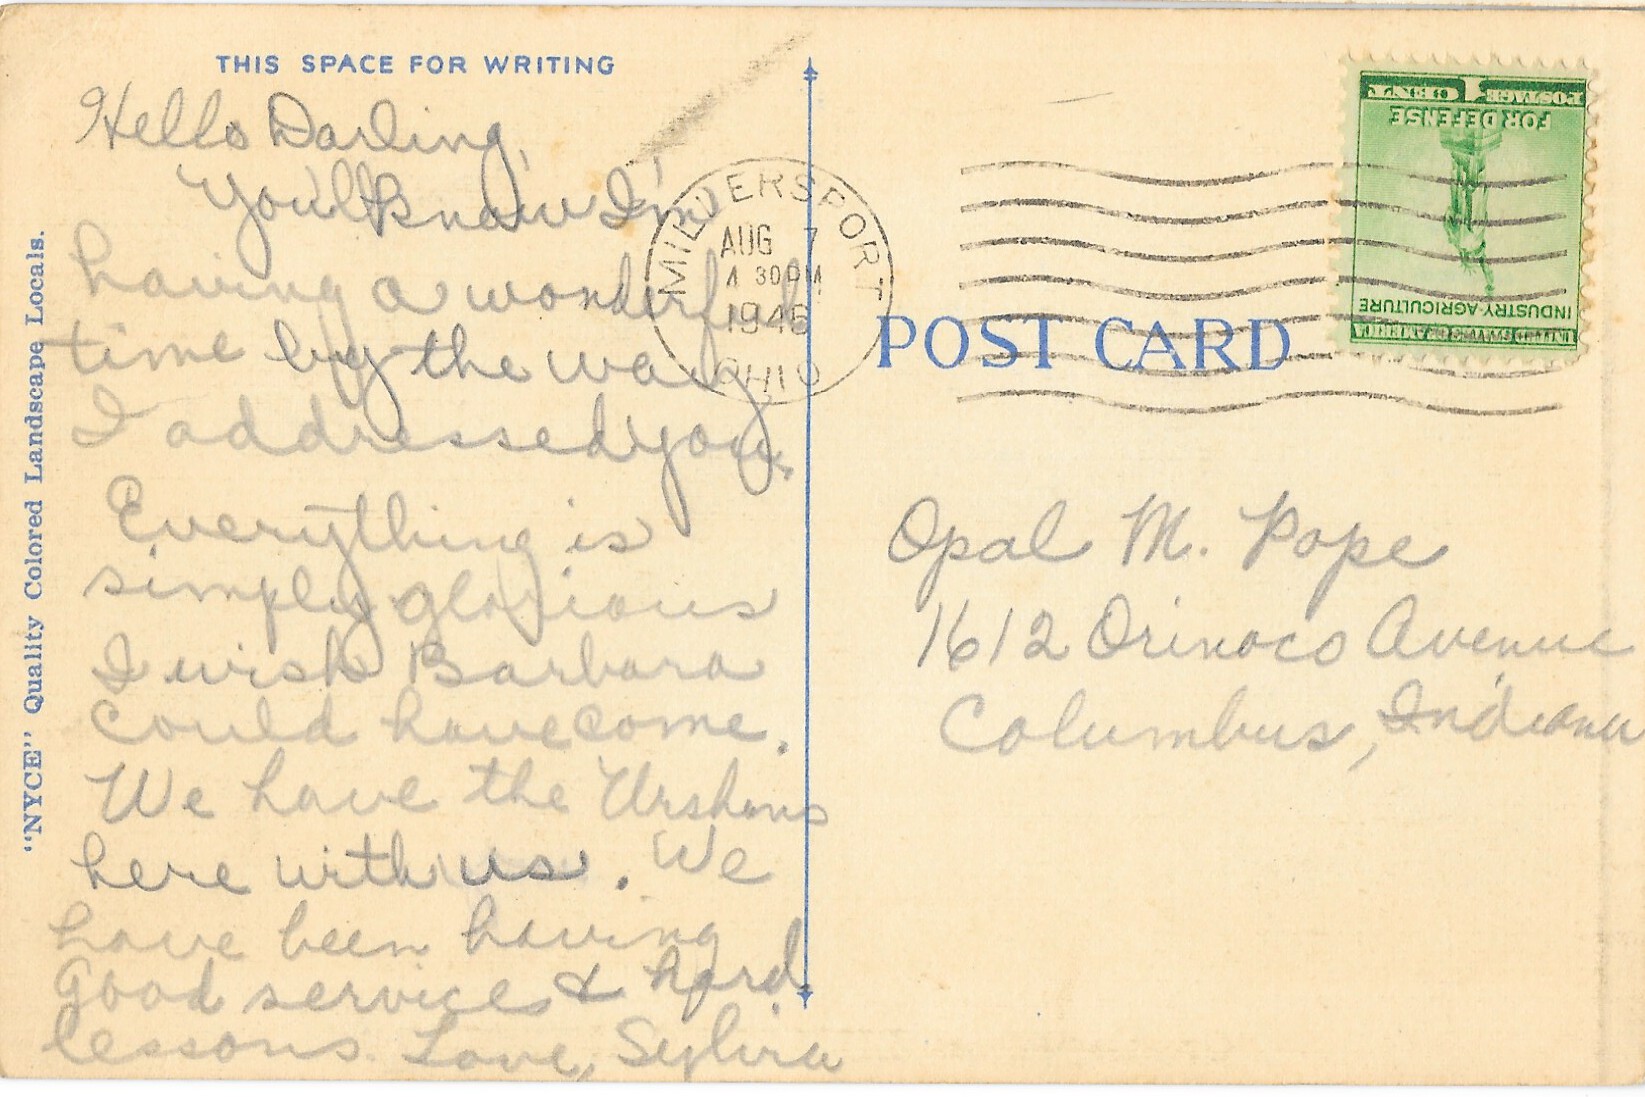 THIS SPACE FOR WRITING
Hello Darling,
You'll know I'm
having a wonderful
time by the way
I addressed you.
Everything is
simply glorious
I wish Barbara
could have come.
We have the
here with us. We
have been having
good services & hard
lessons. Love, Sylvia
"NYCE" Quality Colored Landscape Locals.
MILLERSPORT
AUG 7
4 30 PM
1946
OHIO
POST CARD
POSTAGE 1 CENT
FOR DEFENSE
INDUSTRY-AGRICULTURE
UNITED STATES OF AMERICA
Opal M. Pope
1612 Orinoco Avenue
Columbus, Indiana